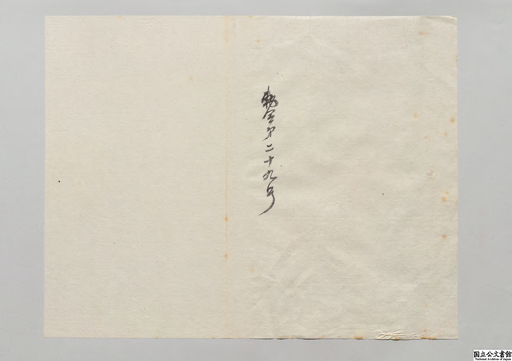 勅令第二十九号
国立公文書館
National Archives of Japan